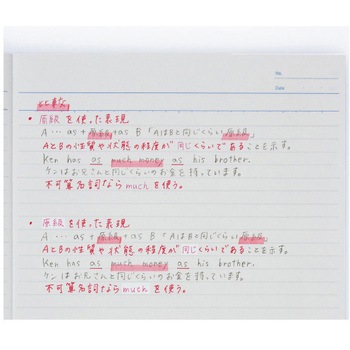 No.
Date
比較
• 原級を使った表現
A … as + 原級 + as B 「AはBと同じくらい原級」
AとBの性質や状態の程度が同じくらいであることを示す。
Ken has as much money as his brother.
ケンはお兄さんと同じくらいのお金を持っています。
不可算名詞ならmuchを使う。
• 原級を使った表現
A … as + 原級 + as B 「AはBと同じくらい原級」
AとBの性質や状態の程度が同じくらいであることを示す。
Ken has as much money as his brother.
ケンはお兄さんと同じくらいのお金を持しています。
不可算名詞ならmuchを使う。